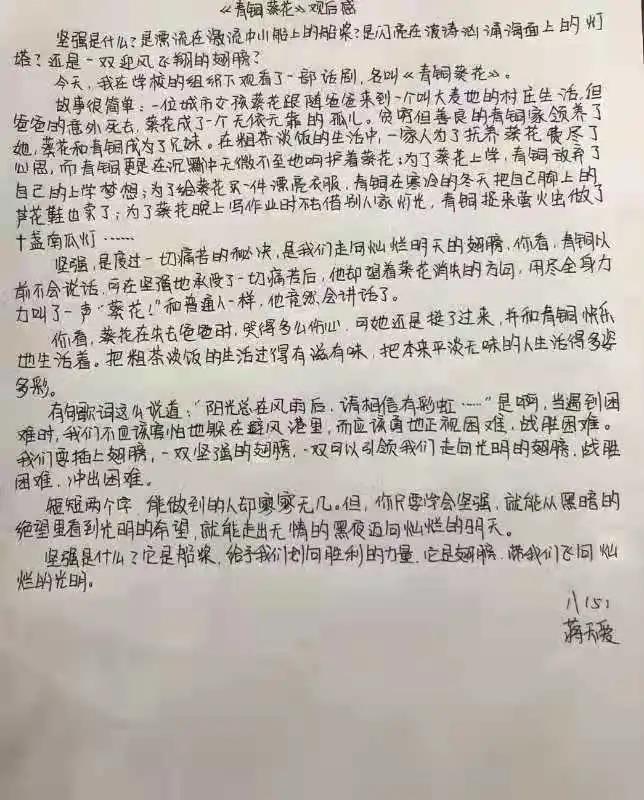 《青铜葵花》观后感
坚强是什么?是漂流在激流中小船上的船桨?是闪亮在波涛汹涌海面上的灯
塔?还是一双迎风飞翔的翅膀?
今天,我在学校的组织下观看了一部话剧,名叫《青铜葵花》。
故事很简单:一位城市女孩葵花跟随爸爸来到一个叫大麦地的村庄生活,但
爸爸的意外死去,葵花成了一个无依无靠的孤儿。贫穷但善良的青铜家领养了
她,葵花和青铜成为了兄妹。在粗茶淡饭的生活中,一家人为了抚养葵花费尽了
心思,而青铜更是在沉默中无微不至地呵护着葵花:为了葵花上学,青铜放弃了
自己的上学梦想;为了给葵花买一件漂亮衣服,青铜在寒冷的冬天把自己脚上的
芦花鞋也卖了;为了葵花晚上写作业时不去借别人家灯光,青铜捉来萤火虫做了
十盏南瓜灯……
坚强,是度过一切痛苦的秘诀,是我们走向灿烂明天的翅膀。你看,青铜以
前不会说话,可在坚强地承受了一切痛苦后,他却望着葵花消失的方向,用尽全身力
力叫了一声“葵花!”和普通人一样,他竟然会讲话了。
你看,葵花在失去爸爸时,哭得多么伤心,可她还是挺了过来,并和青铜快乐
地生活着。把粗茶淡饭的生活过得有滋有味,把本来平淡无味的人生活得多姿
多彩。
有句歌词这么说道:“阳光总在风雨后,请相信有彩虹……”是啊,当遇到困
难时,我们不应该害怕地躲在避风港里,而应该勇地正视困难,战胜困难。
我们要插上翅膀,一双坚强的翅膀,一双可以引领我们走向光明的翅膀,战胜
困难,冲出困难。
短短两个字,能做到的人却寥寥无几。但,你只要学会坚强,就能从黑暗的
绝望里看到光明的希望,就能走出无情的黑夜迈向灿烂的明天。
坚强是什么?它是船桨,给予我们划向胜利的力量,它是翅膀,带我们飞向灿
烂的光明。
蒋天爱